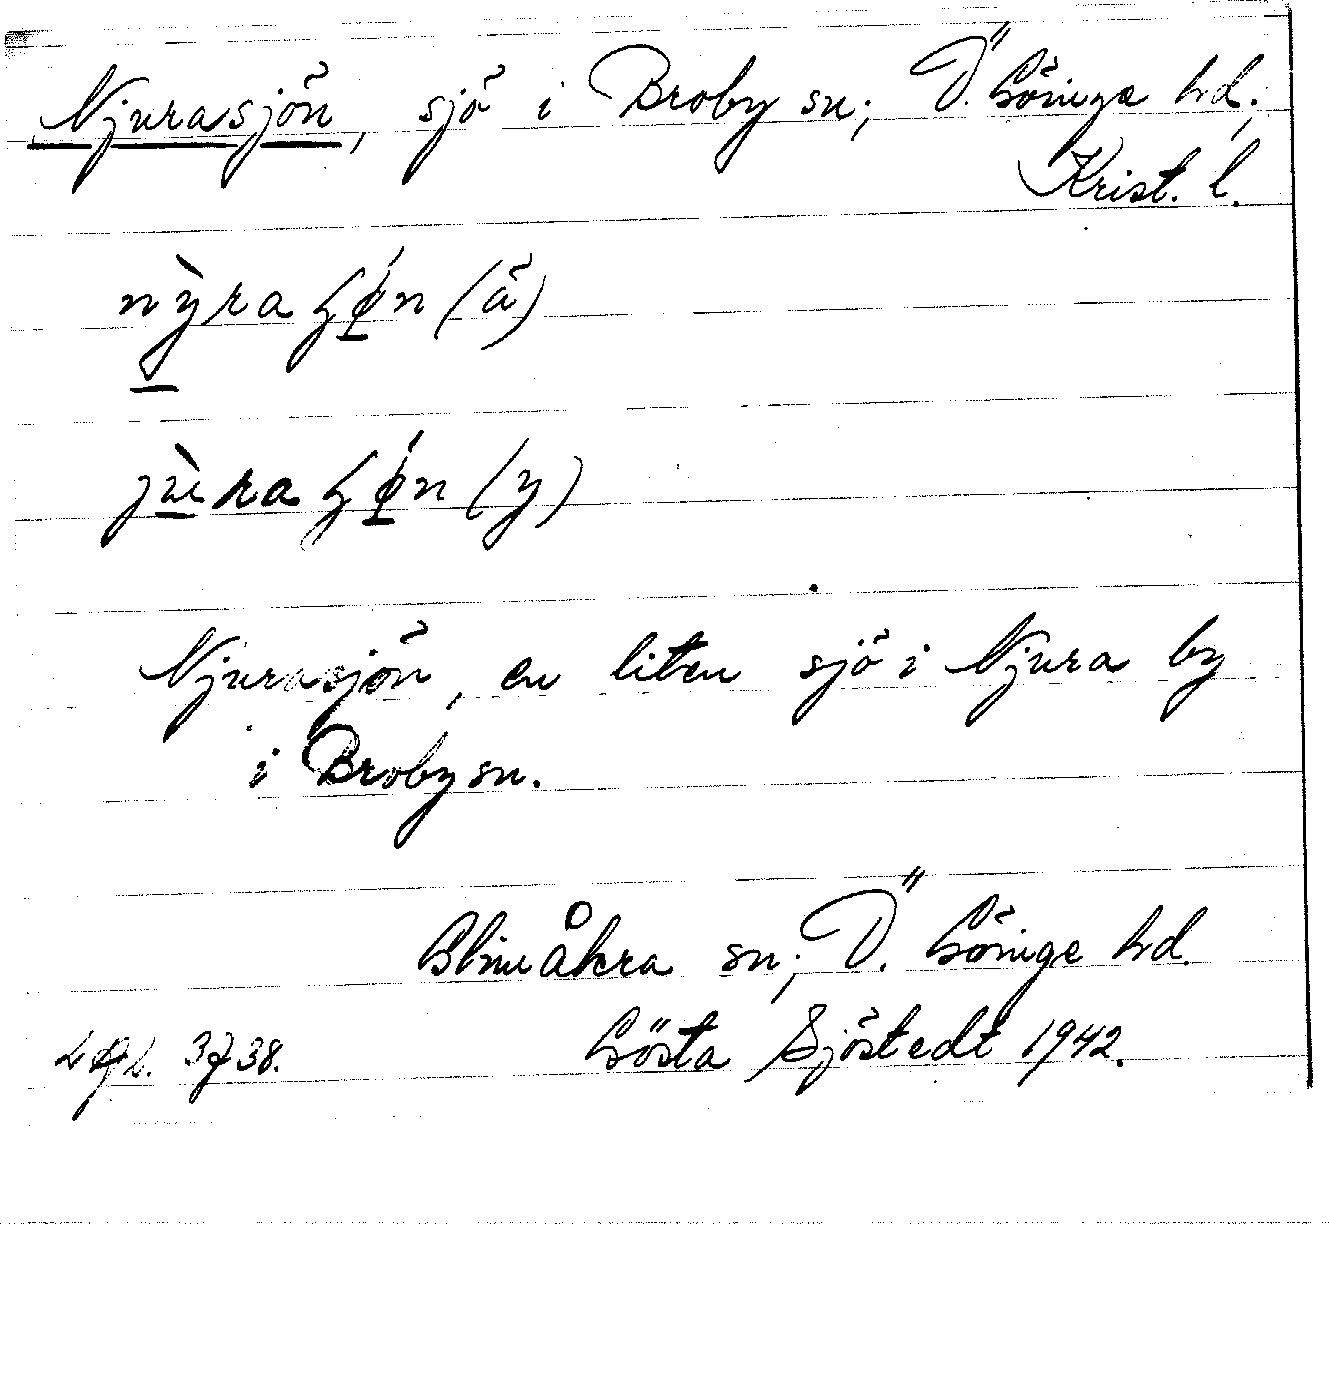 Njurasjön, sjö i Broby sn; Ö. Göinge hd,
Krist. l.
(å)
(y)
Njurasjön, en liten sjö i Njura by
i Broby sn.
Glimåkra sn; Ö. Göinge hd.
3738. Gösta Sjöstedt 1942.